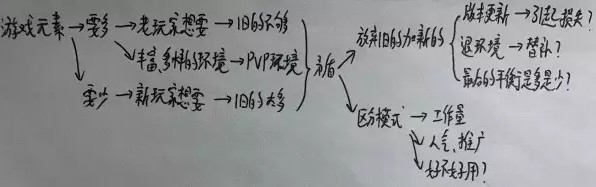 游戏元素→要多→老玩家想要→旧的不够
→丰富,多样的环境→PVP环境
→要少→新玩家想要→旧的太多
矛盾
→放弃旧的加新的
版本更新→引起损失?
退环境→替补?
最后的平衡是多是少?
→区分模式→工作量
→人气、推广
→好不好用?